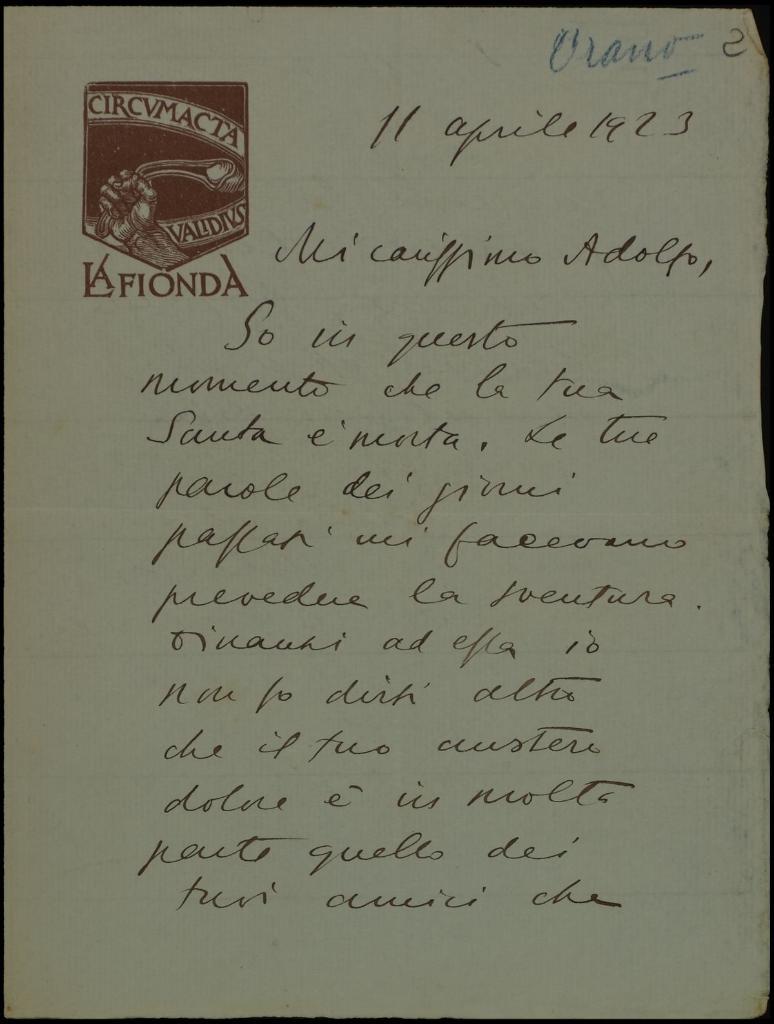 Orano 2
CIRCVMACTA
VALIDIVS
LA FIONDA
11 aprile 1923
Mi carissimo Adolfo,
So in questo
momento che la tua
Santa è morta. Le tue
parole dei giorni
passati mi facevano
prevedere la sventura.
Dinanzi ad essa io
non so dirti altro
che il tuo austero
dolore è in molta
parte quello dei
tuoi amici che